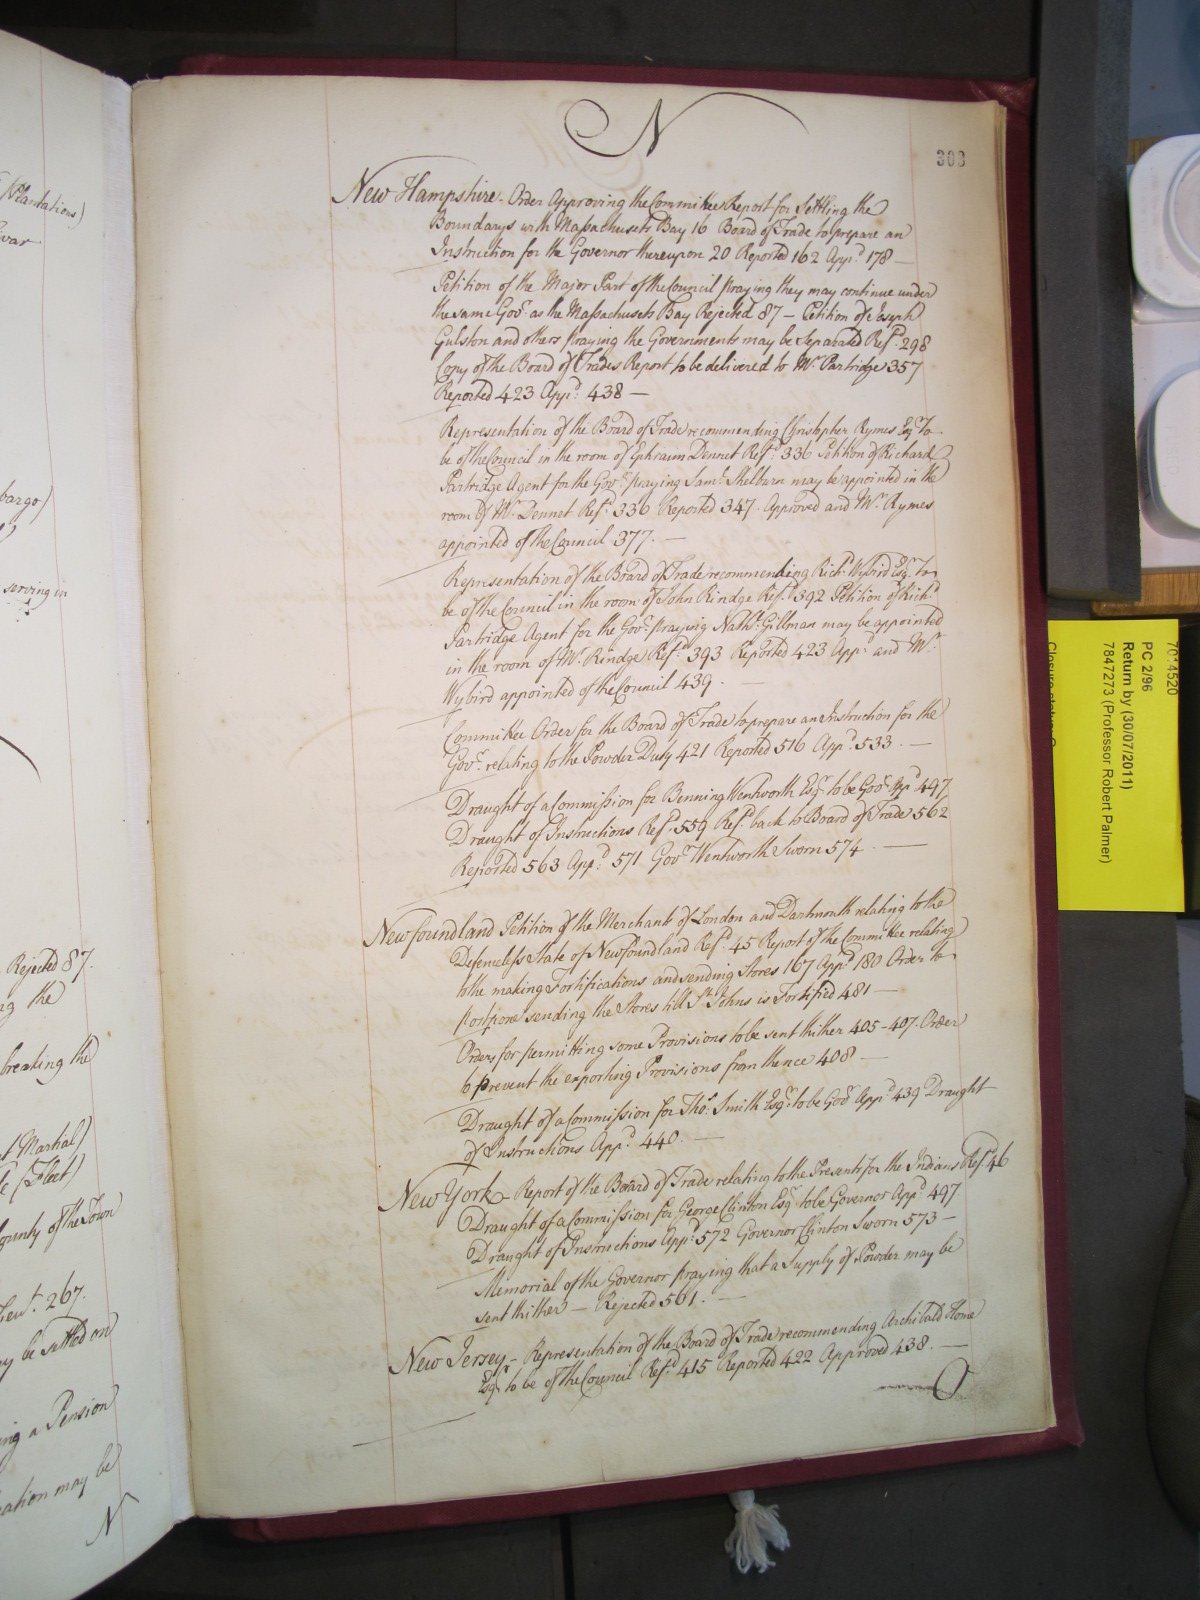 Plantations)
bargo)
serving in
Rejected 87.
ng the
breaking the
t Martial)
e (Fleet)
ounty of the Town
Lieut. 267.
ay be settled on
ing a Pension
ation may be
N
N
303
New Hampshire - Order Approving the Committees Report for Settling the
Boundarys with Massachusets Bay 16 Board of Trade to prepare an
Instruction for the Governor thereupon 20 Reported 162 Appd. 178 —
Petition of the Major Part of the Council praying they may continue under
the same Govr. as the Massachusets Bay Rejected 87 — Petition of Joseph
Gulston and others praying the Governments may be Separated Refd. 298
Copy of the Board of Trades Report to be delivered to Mr. Partridge 357
Reported 423 Appd. 438 —
Representation of the Board of Trade recommending Christopher Rymes Esqr. to
be of the Council in the room of Ephraim Dennet Refd. 336 Petition of Richard
Partridge Agent for the Govr. praying Saml. Shelburn may be appointed in the
room of Mr. Dennet Refd. 336 Reported 347. Approved and Mr. Rymes
appointed of the Council 377. —
Representation of the Board of Trade recommending Richd. Wybird Esqr. to
be of the Council in the room of John Rindge Refd. 392 Petition of Richd.
Partridge Agent for the Govr. praying Nathl. Gillman may be appointed
in the room of Mr. Rindge Refd. 393 Reported 423 Appd. and Mr.
Wybird appointed of the Council 439. —
Committee Order for the Board of Trade to prepare an Instruction for the
Govr. relating to the Powder Duty 421 Reported 516 Appd. 533. —
Draught of a Commission for Benning Wentworth Esqr. to be Govr. Appd. 497
Draught of Instructions Refd. 559 Refd. back to Board of Trade 562
Reported 563 Appd. 571 Govr. Wentworth Sworn 574. —
Newfoundland Petition of the Merchants of London and Dartmouth relating to the
Defenceless State of Newfoundland Refd. 45 Report of the Committee relating
to the making Fortifications and sending Stores 167 Appd. 180 Order to
postpone sending the Stores till St. Johns is Fortified 481 —
Orders for permitting some Provisions to be sent thither 405-407. Order
to prevent the exporting Provisions from thence 408 —
Draught of a Commission for Thos. Smith Esqr. to be Govr. Appd. 439 Draught
of Instructions Appd. 440. —
New York - Report of the Board of Trade relating to the Presents for the Indians Refd. 46
Draught of a Commission for George Clinton Esqr. to be Governor Appd. 497
Draught of Instructions Appd. 572 Governor Clinton Sworn 573 —
Memorial of the Governor praying that a Supply of Powder may be
sent thither — Rejected 561. —
New Jersey - Representation of the Board of Trade recommending Archibald Home
Esqr. to be of the Council Refd. 415 Reported 422 Approved 438. —
O
PC 2/96
Return by (30/07/2011)
7847273 (Professor Robert Palmer)